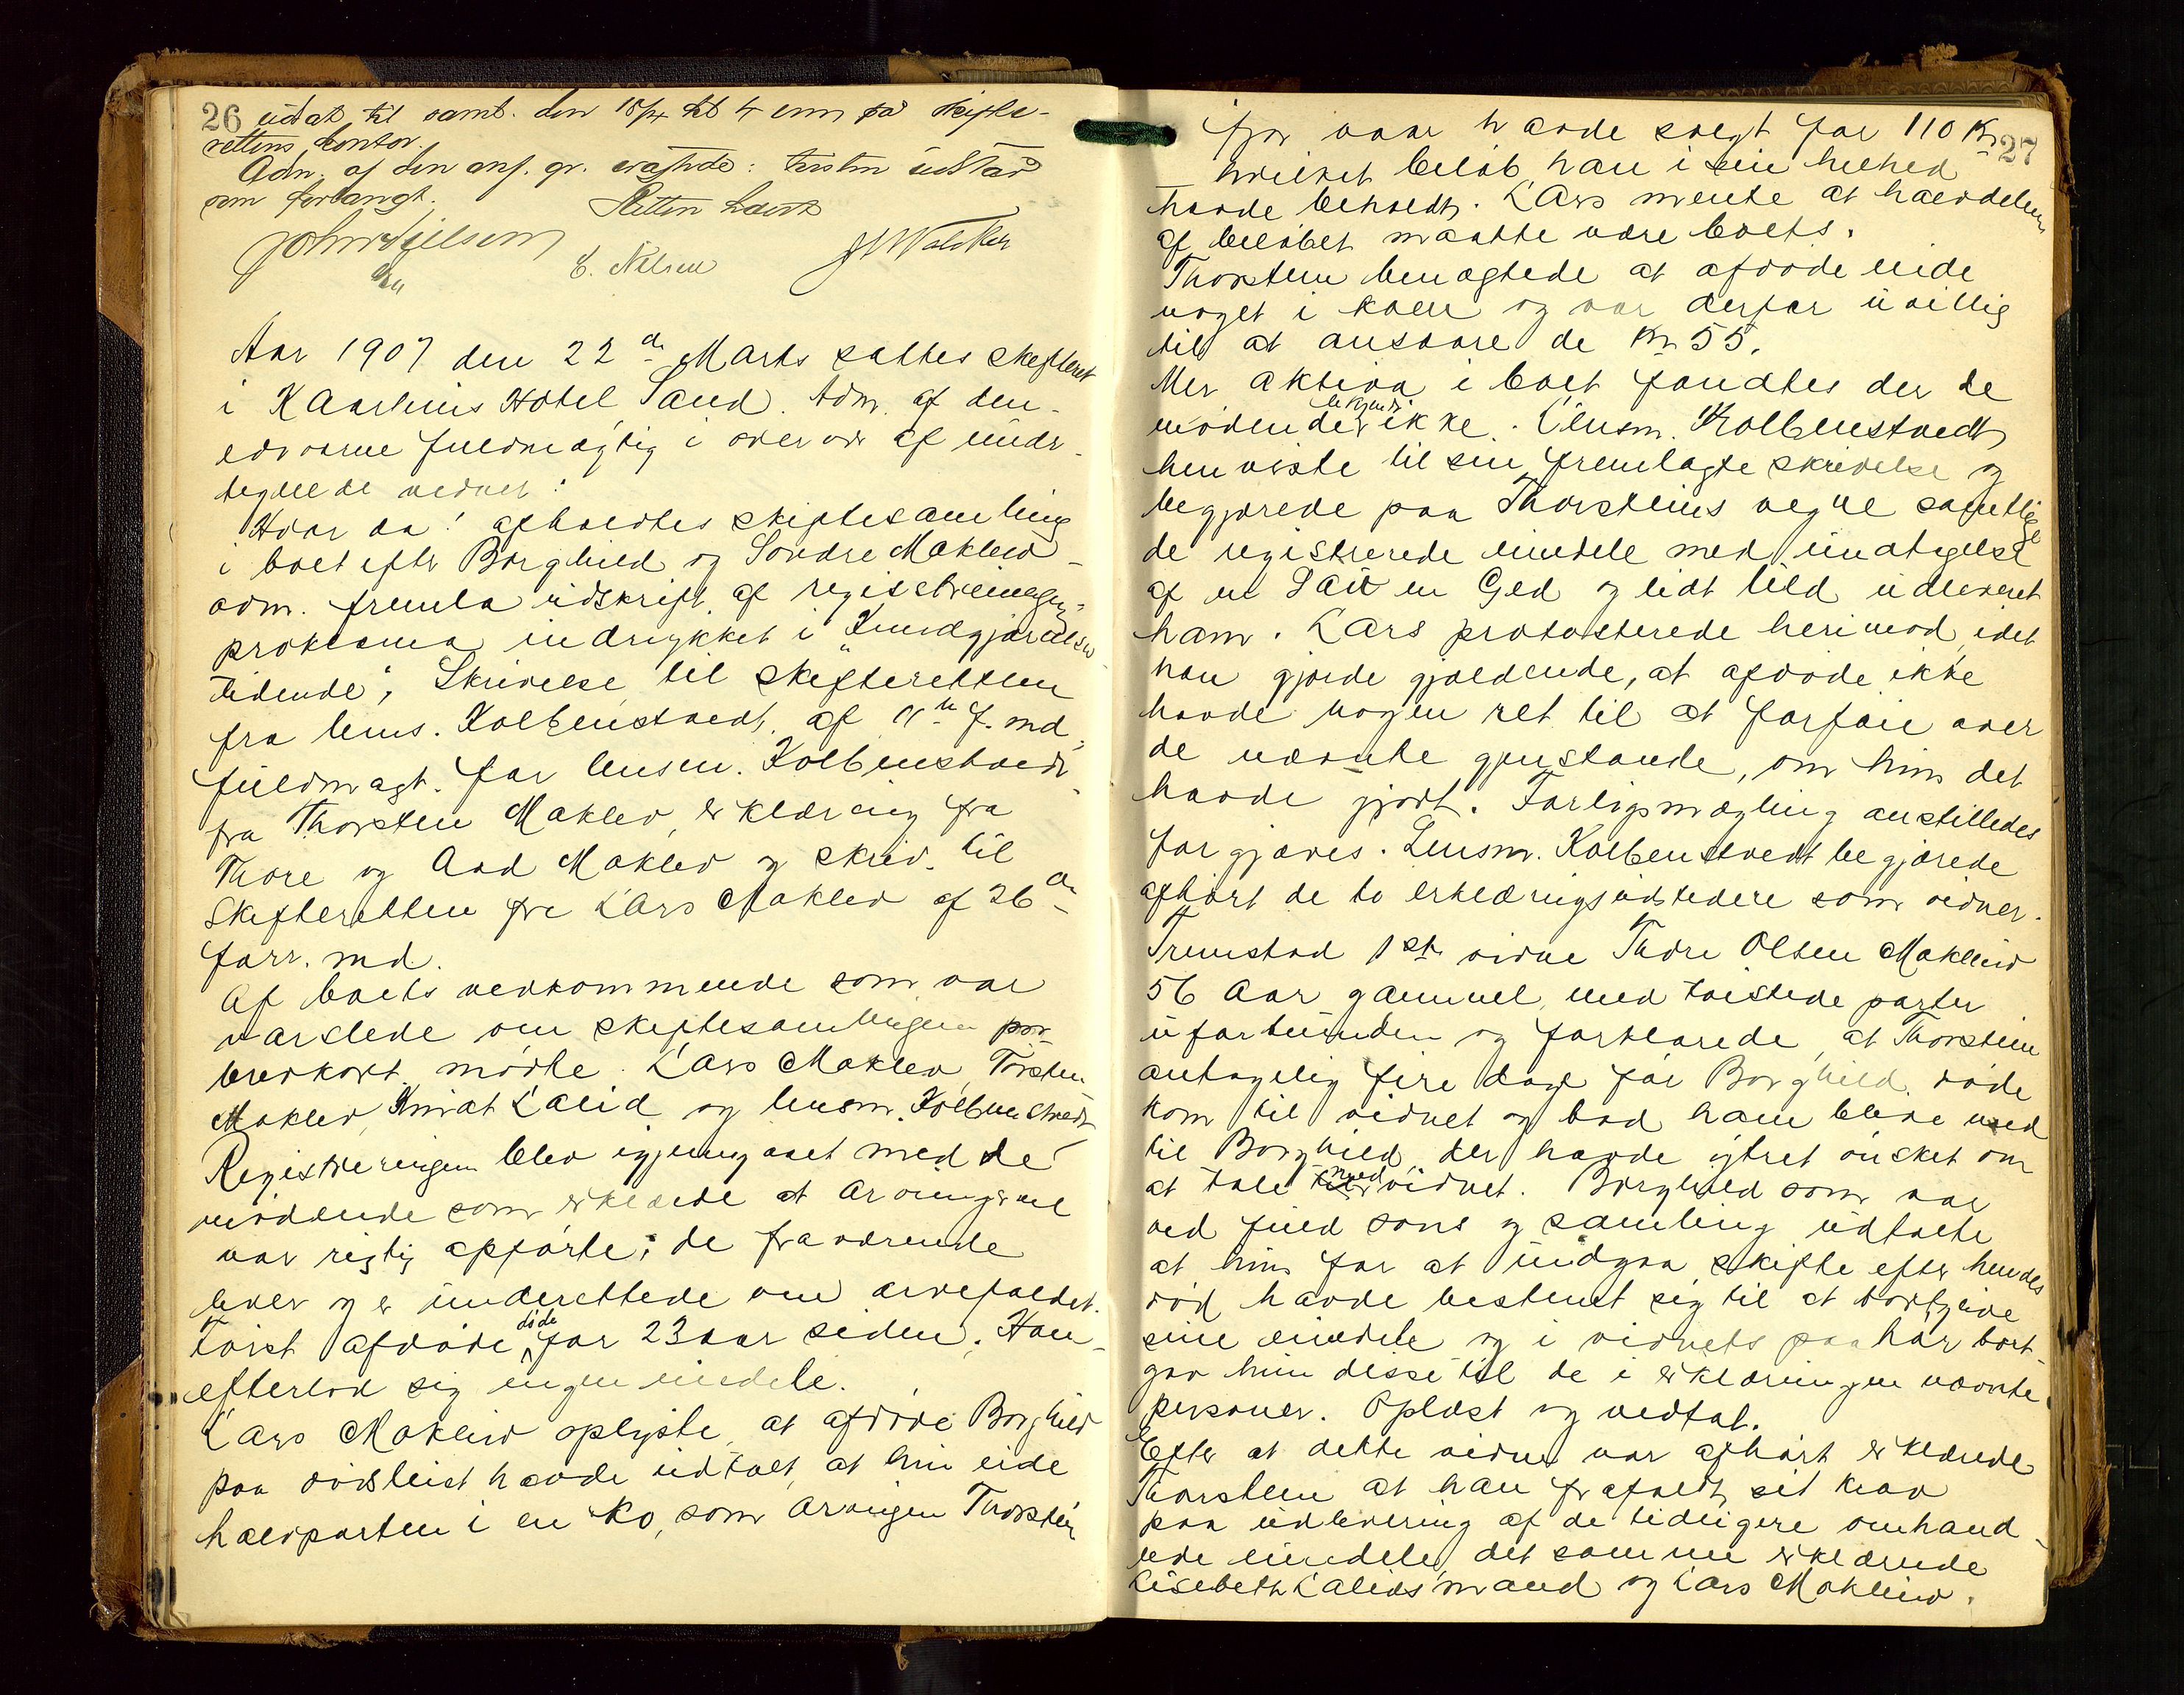 26 udsat til saml. den 18/4 kl 4 em paa skifte-
rettens kontor.
Adm. af den anf. gr. : fristen udstaar
som forlangt.
Retten hævet
John Nielsen
E. Nilsen

Aar 1907 den 22de Marts sattes skifteret
i Kaarhuus Hotel Sand. Adm. af den
edsvorne fuldmægtig i overvær af under-
tegnede vidner:
Hvor da: afholdtes skiftesamling
i boet efter Borghild og Sondre Mokleiv
adm. fremla udskrift af registreringen,
proklama indrykket i "Kundgjørelses-
tidende", Skrivelse til skifteretten
fra lens. Kolbenstvedt af 11te f. md,
fuldmagt for lensm. Kolbenstvedt
fra Thorsten Moklev, erklæring fra
Thore og Aad Moklev og skriv. til
Skifteretten fra Lars Moklev af 26de
forr. md.
Af boets vedkommende som var
varslede om skiftesamlingen pr.
brevkort mødte Lars Moklev, Torsten
Moklev, Knut Lalid og lensm. Kolbenstvedt
Registreringen blev igjennemgaaet med de
mødende som erklærede at arvingerne
var rigtig opførte; de fraværende
lever og er underettede om arvefaldet.
Først afdøde døde for 23 aar siden. Han
efterlod sig ingen eiendele.
Lars Mokleiv oplyste at afdøde Borghild
paa dødsleiet havde udtalt at hun eide
halvparten i en ko, som arvingen Thorstein

27
ifjor vaar havde solgt for 110 Kr
hvilket beløb han i sin helhed
havde beholdt. Lars mente at halvdelen
af beløbet maatte være boets.
Thorstein benegtede at afdøde eide
noget i koen og var derfor uvillig
til at ansvare de Kr 55.
Mer aktiva i boet fandtes der de
mødende bekjendt ikke. Lensm. Kolbenstvedt
henviste til sin fremlagte skrivelse og
begjærede paa Thorsteins vegne samtlige
de registrerede eiendele med undtagelse
af en Sau en Ged og lidt Uld udleveret
ham. Lars protesterede herimod, idet
han gjorde gjældende, at afdøde ikke
havde nogen ret til at forføie over
de nævnte gjenstande, om hun det
havde gjort. Forligsmægling anstilledes
forgjæves. Lensm. Kolbenstvedt begjærede
afhørt de to erklæringsudstedere som vidner.
Fremstod 1ste vidne Thore Olsen Mokleiv
56 Aar gammel, med tvistede parter
uforbunden og forklarede, at Thorstein
antagelig fire dage før Borghild døde
kom til vidnet og bad ham blive med
til Borghild der havde ytret ønsket om
at tale med vidnet. Borghild som var
ved fuld sans og samling udtalte
at hun for at undgaa skifte efter hendes
død havde bestemt sig til at bortgive
sine eiendele og i vidnets paahør bort-
gav hun disse til de i erklæringen nævnte
personer. Oplæst og vedtat.
Efter at dette vidne var afhørt erklærede
Thorstein at han frafaldt sit krav
paa udlevering af de tidligere omhand-
lede eiendele, det samme erklærede
Lisebeth Lalids mand og Lars Mokleiv.